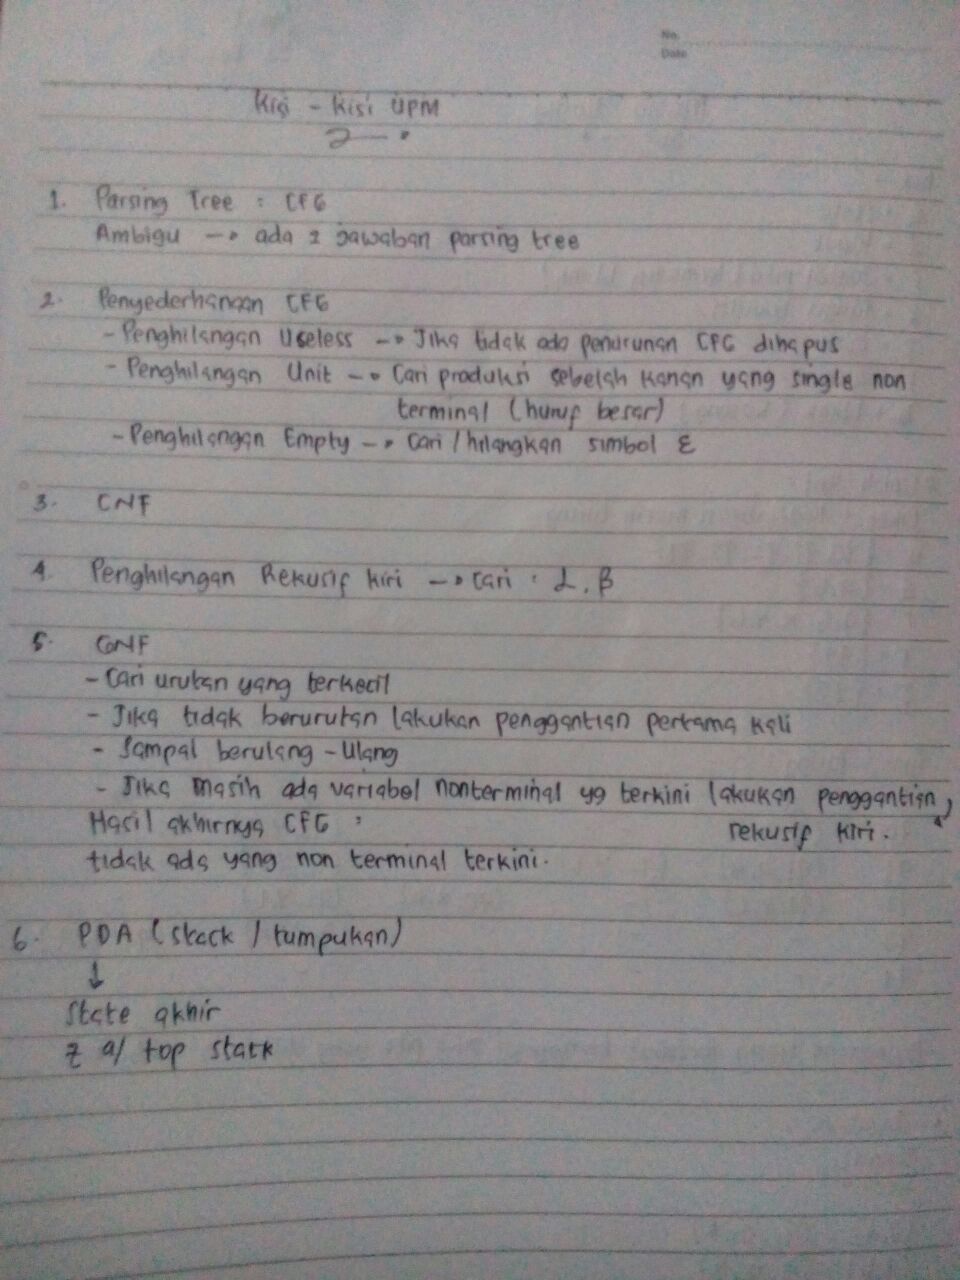 No.
Date
Kisi - Kisi UPM
1. Parsing Tree : CFG
Ambigu → ada 2 jawaban parsing tree
2. Penyederhanaan CFG
- Penghilangan Useless → Jika tidak ada penurunan CFG dihapus
- Penghilangan Unit → Cari produksi sebelah kanan yang single non
terminal (huruf besar)
- Penghilangan Empty → cari / hilangkan simbol ε
3. CNF
4. Penghilangan Rekusif kiri → cari : α, β
5. GNF
- Cari urutan yang terkecil
- Jika tidak berurutan lakukan penggantian pertama kali
- Sampai berulang - Ulang
- Jika masih ada variabel nonterminal yg terkini lakukan penggantian,
rekusif kiri.
Hasil akhirnya CFG :
tidak ada yang non terminal terkini.
6. PDA (stack / tumpukan)
↓
State akhir
Z a/ top stack